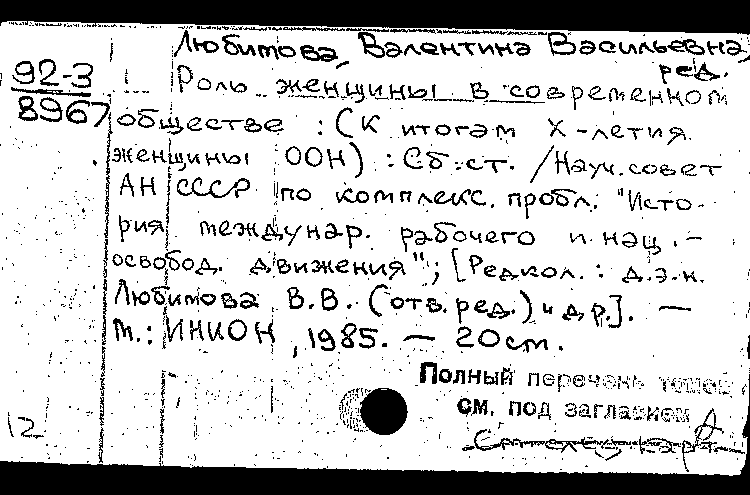 Любимова, Валентина Васильевна,
ред.
92-3
8967
Роль женщины в современном
обществе : (К итогам X-летия
женщины ООН) : Сб. ст. / Науч. совет
АН СССР по комплекс. пробл. "Исто-
рия междунар. рабочего и нац.-
освобод. движения"; [Редкол.: д.э.н.
Любимова В.В. (отв. ред.) и др.]. —
М.: ИНИОН, 1985. — 20 см.
Полный перечень томов
см. под заглавием
12